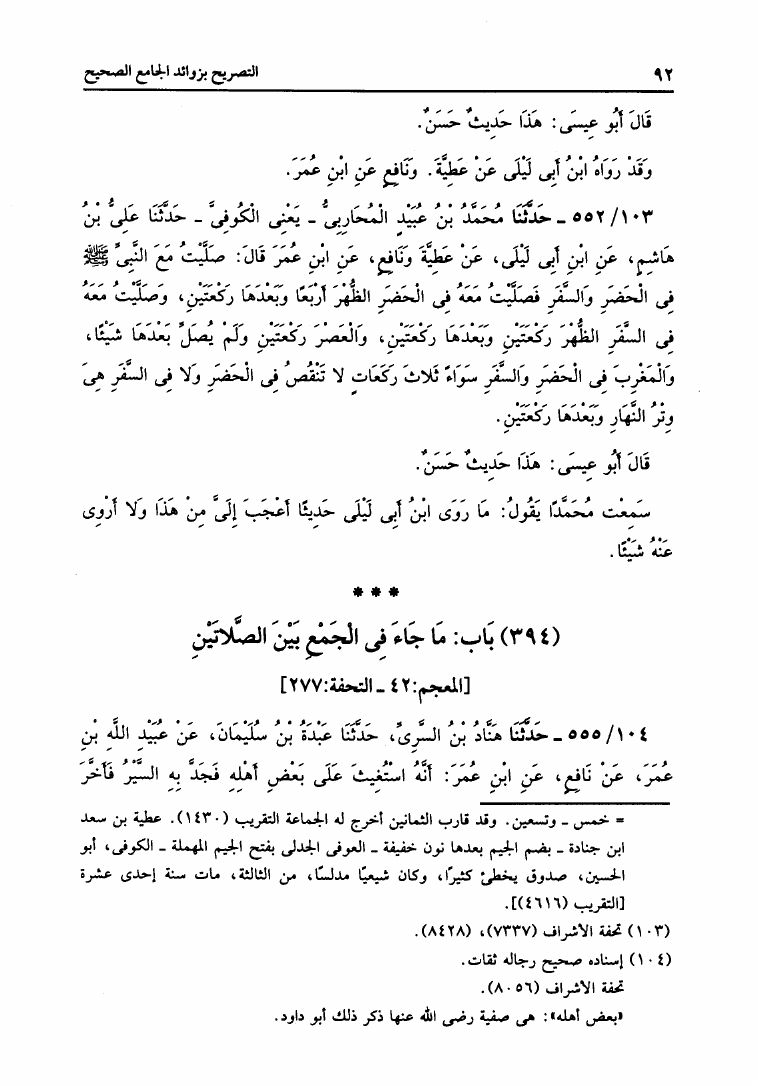 ٩٢ التصريح بزوائد الجامع الصحيح
قَالَ أَبُو عِيسَى: هَذَا حَدِيثٌ حَسَنٌ.
وَقَدْ رَوَاهُ ابْنُ أَبِى لَيْلَى عَنْ عَطِيَّةَ. وَنَافِعٍ عَنِ ابْنِ عُمَرَ.
١٠٣/ ٥٥٢ ـ حَدَّثَنَا مُحَمَّدُ بْنُ عُبَيْدٍ الْمُحَارِبِىُّ ـ يَعْنِى الْكُوفِىَّ ـ حَدَّثَنَا عَلِىُّ بْنُ
هَاشِمٍ، عَنِ ابْنِ أَبِى لَيْلَى، عَنْ عَطِيَّةَ وَنَافِعٍ، عَنِ ابْنِ عُمَرَ قَالَ: صَلَّيْتُ مَعَ النَّبِىِّ ﷺ
فِى الْحَضَرِ وَالسَّفَرِ فَصَلَّيْتُ مَعَهُ فِى الْحَضَرِ الظُّهْرَ أَرْبَعًا وَبَعْدَهَا رَكْعَتَيْنِ، وَصَلَّيْتُ مَعَهُ
فِى السَّفَرِ الظُّهْرَ رَكْعَتَيْنِ وَبَعْدَهَا رَكْعَتَيْنِ، وَالْعَصْرَ رَكْعَتَيْنِ وَلَمْ يُصَلِّ بَعْدَهَا شَيْئًا،
وَالْمَغْرِبَ فِى الْحَضَرِ وَالسَّفَرِ سَوَاءً ثَلاَثَ رَكَعَاتٍ لاَ تَنْقُصُ فِى الْحَضَرِ وَلاَ فِى السَّفَرِ هِىَ
وِتْرُ النَّهَارِ وَبَعْدَهَا رَكْعَتَيْنِ.
قَالَ أَبُو عِيسَى: هَذَا حَدِيثٌ حَسَنٌ.
سَمِعْت مُحَمَّدًا يَقُولُ: مَا رَوَى ابْنُ أَبِى لَيْلَى حَدِيثًا أَعْجَبَ إِلَىَّ مِنْ هَذَا وَلاَ أَرْوِى
عَنْهُ شَيْئًا.
* * *
(٣٩٤) بَاب: مَا جَاءَ فِى الْجَمْعِ بَيْنَ الصَّلاَتَيْنِ
[المعجم:٤٢ ـ التحفة:٢٧٧]
١٠٤/ ٥٥٥ ـ حَدَّثَنَا هَنَّادُ بْنُ السَّرِىِّ، حَدَّثَنَا عَبْدَةُ بْنُ سُلَيْمَانَ، عَنْ عُبَيْدِ اللَّهِ بْنِ
عُمَرَ، عَنْ نَافِعٍ، عَنِ ابْنِ عُمَرَ: أَنَّهُ اسْتُغِيثَ عَلَى بَعْضِ أَهْلِهِ فَجَدَّ بِهِ السَّيْرُ فَأَخَّرَ
= خمس ـ وتسعين. وقد قارب الثمانين أخرج له الجماعة التقريب (١٤٣٠). عطية بن سعد
ابن جنادة ـ بضم الجيم بعدها نون خفيفة ـ العوفى الجدلى بفتح الجيم المهملة ـ الكوفى، أبو
الحسين، صدوق يخطئ كثيرًا، وكان شيعيًا مدلسًا، من الثالثة، مات سنة إحدى عشرة
[التقريب (٤٦١٦)].
(١٠٣) تحفة الأشراف (٧٣٣٧)، (٨٤٢٨).
(١٠٤) إسناده صحيح رجاله ثقات.
تحفة الأشراف (٨٠٥٦).
«بعض أهله»: هى صفية رضى الله عنها ذكر ذلك أبو داود.